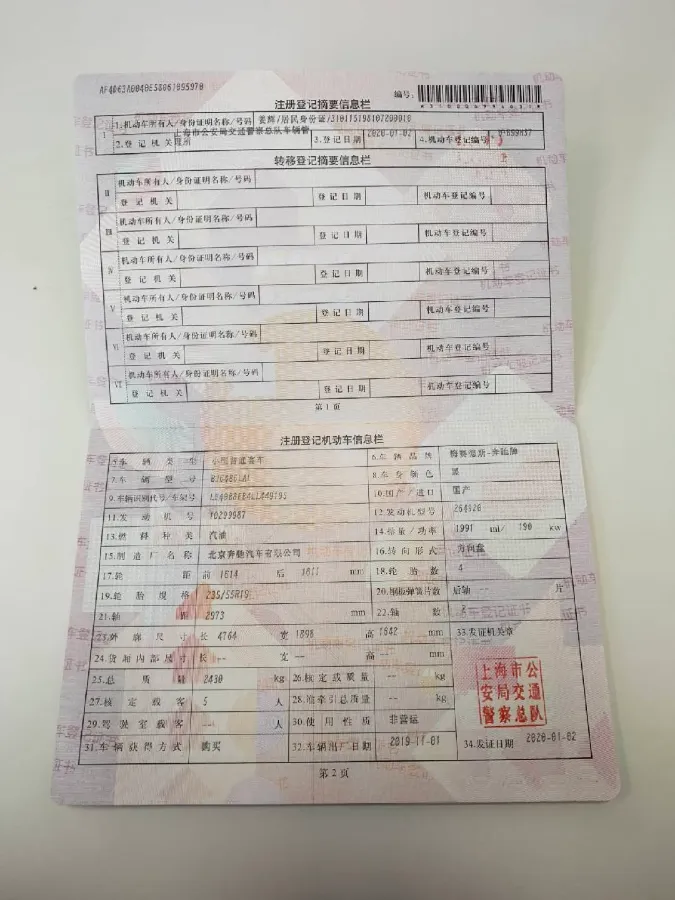 编号:
注册登记摘要信息栏
I 1.机动车所有人/身份证明名称/号码 /居民身份证/
2.登记机关 上海市公安局交通警察总队车辆管理所 3.登记日期 2020-01-02 4.机动车登记编号
转移登记摘要信息栏
II 机动车所有人/身份证明名称/号码
登记机关 登记日期 机动车登记编号
III 机动车所有人/身份证明名称/号码
登记机关 登记日期 机动车登记编号
IV 机动车所有人/身份证明名称/号码
登记机关 登记日期 机动车登记编号
V 机动车所有人/身份证明名称/号码
登记机关 登记日期 机动车登记编号
VI 机动车所有人/身份证明名称/号码
登记机关 登记日期 机动车登记编号
VII 机动车所有人/身份证明名称/号码
登记机关 登记日期 机动车登记编号
第1页
注册登记机动车信息栏
5.车辆类型 小型普通客车 6.车辆品牌 梅赛德斯-奔驰牌
7.车辆型号 8.车身颜色 黑
9.车辆识别代号/车架号 10.国产/进口 国产
11.发动机号 12.发动机型号 264920
13.燃料种类 汽油 14.排量/功率 1991 ml/ 190 kw
15.制造厂名称 北京奔驰汽车有限公司 16.转向形式 方向盘
17.轮距 前 1614 后 1611 mm 18.轮胎数 4
19.轮胎规格 235/55R19 20.钢板弹簧片数 后轴 -- 片
21.轴距 2973 mm 22.轴数
23.外廓尺寸 长 4764 宽 1898 高 1642 mm 33.发证机关章
24.货厢内部尺寸 长 -- 宽 -- 高 -- mm
25.总质量 2430 kg 26.核定载质量 -- kg
27.核定载客 5 人 28.准牵引总质量 -- kg
29.驾驶室载客 -- 人 30.使用性质 非营运
31.车辆获得方式 购买 32.车辆出厂日期 2019-11-01 34.发证日期 2020-01-02
上海市公
安局交通
警察总队
第2页